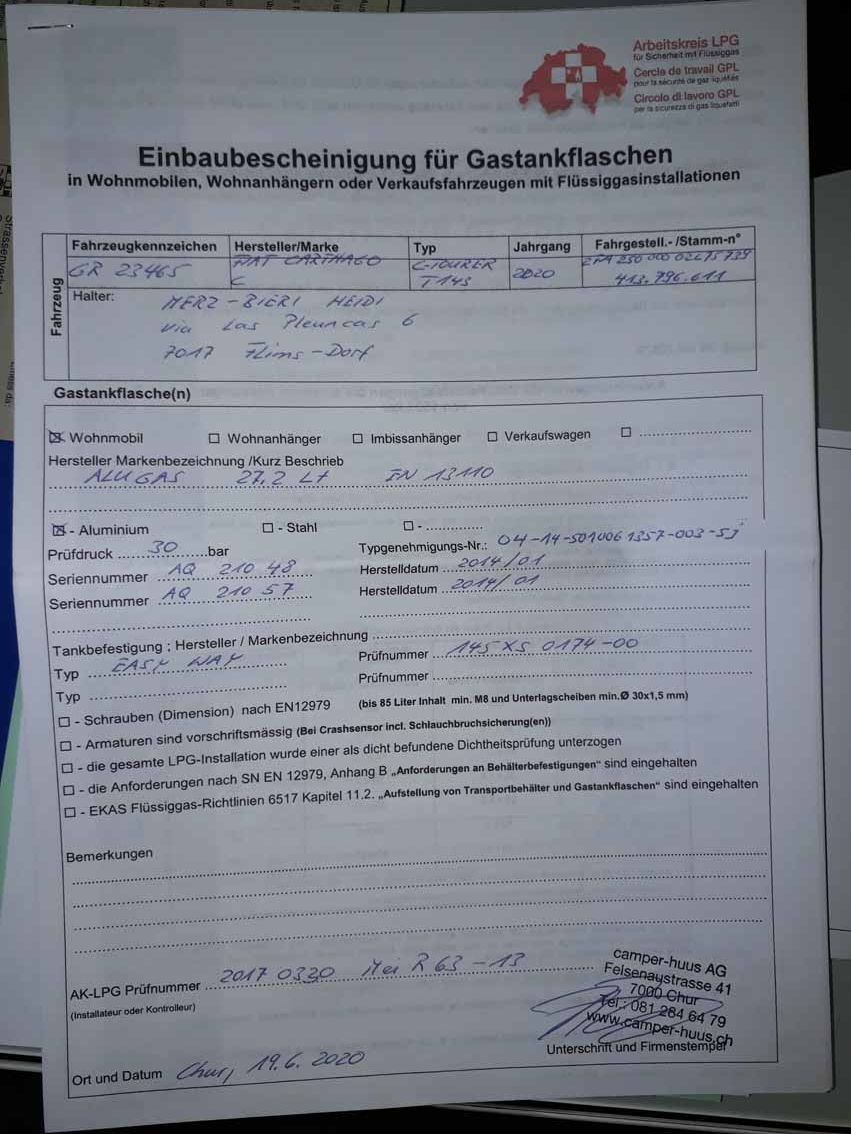 Arbeitskreis LPG
für Sicherheit mit Flüssiggas
Cercle de travail GPL
pour la sécurité de gaz liquéfiés
Circolo di lavoro GPL
per la sicurezza di gas liquefatti
Einbaubescheinigung für Gastankflaschen
in Wohnmobilen, Wohnanhängern oder Verkaufsfahrzeugen mit Flüssiggasinstallationen
Fahrzeug
Fahrzeugkennzeichen Hersteller/Marke Typ Jahrgang Fahrgestell.- /Stamm-n°
GR 23465 FIAT CARTHAGO C C-TOURER T143 2020 413.796.611
Halter: MERZ-BIERI HEIDI
Via Las Pleuncas 6
7017 Flims-Dorf
Gastankflasche(n)
☒ Wohnmobil ☐ Wohnanhänger ☐ Imbissanhänger ☐ Verkaufswagen ☐ ..............................
Hersteller Markenbezeichnung /Kurz Beschrieb
ALUGAS 27,2 Lt EN 13110
☒ - Aluminium ☐ - Stahl ☐ - ..............
Prüfdruck ......30......bar Typgenehmigungs-Nr.: 04-14-5010061357-003-
Seriennummer AQ 210 48 Herstelldatum 2014/01
Seriennummer AQ 210 57 Herstelldatum 2014/01
Tankbefestigung ; Hersteller / Markenbezeichnung
Typ EASY WAY Prüfnummer 145XS 0174-00
Typ Prüfnummer
☐ - Schrauben (Dimension) nach EN12979 (bis 85 Liter Inhalt min. M8 und Unterlagscheiben min.Ø 30x1,5 mm)
☐ - Armaturen sind vorschriftsmässig (Bei Crashsensor incl. Schlauchbruchsicherung(en))
☐ - die gesamte LPG-Installation wurde einer als dicht befundene Dichtheitsprüfung unterzogen
☐ - die Anforderungen nach SN EN 12979, Anhang B „Anforderungen an Behälterbefestigungen" sind eingehalten
☐ - EKAS Flüssiggas-Richtlinien 6517 Kapitel 11.2. „Aufstellung von Transportbehälter und Gastankflaschen" sind eingehalten
Bemerkungen
AK-LPG Prüfnummer 2017 0330 Mei R 63-13
(Installateur oder Kontrolleur)
camper-huus AG
Felsenaustrasse 41
7000 Chur
Tel.: 081 284 64 79
www.camper-huus.ch
Unterschrift und Firmenstempel
Ort und Datum Chur, 19.6. 2020